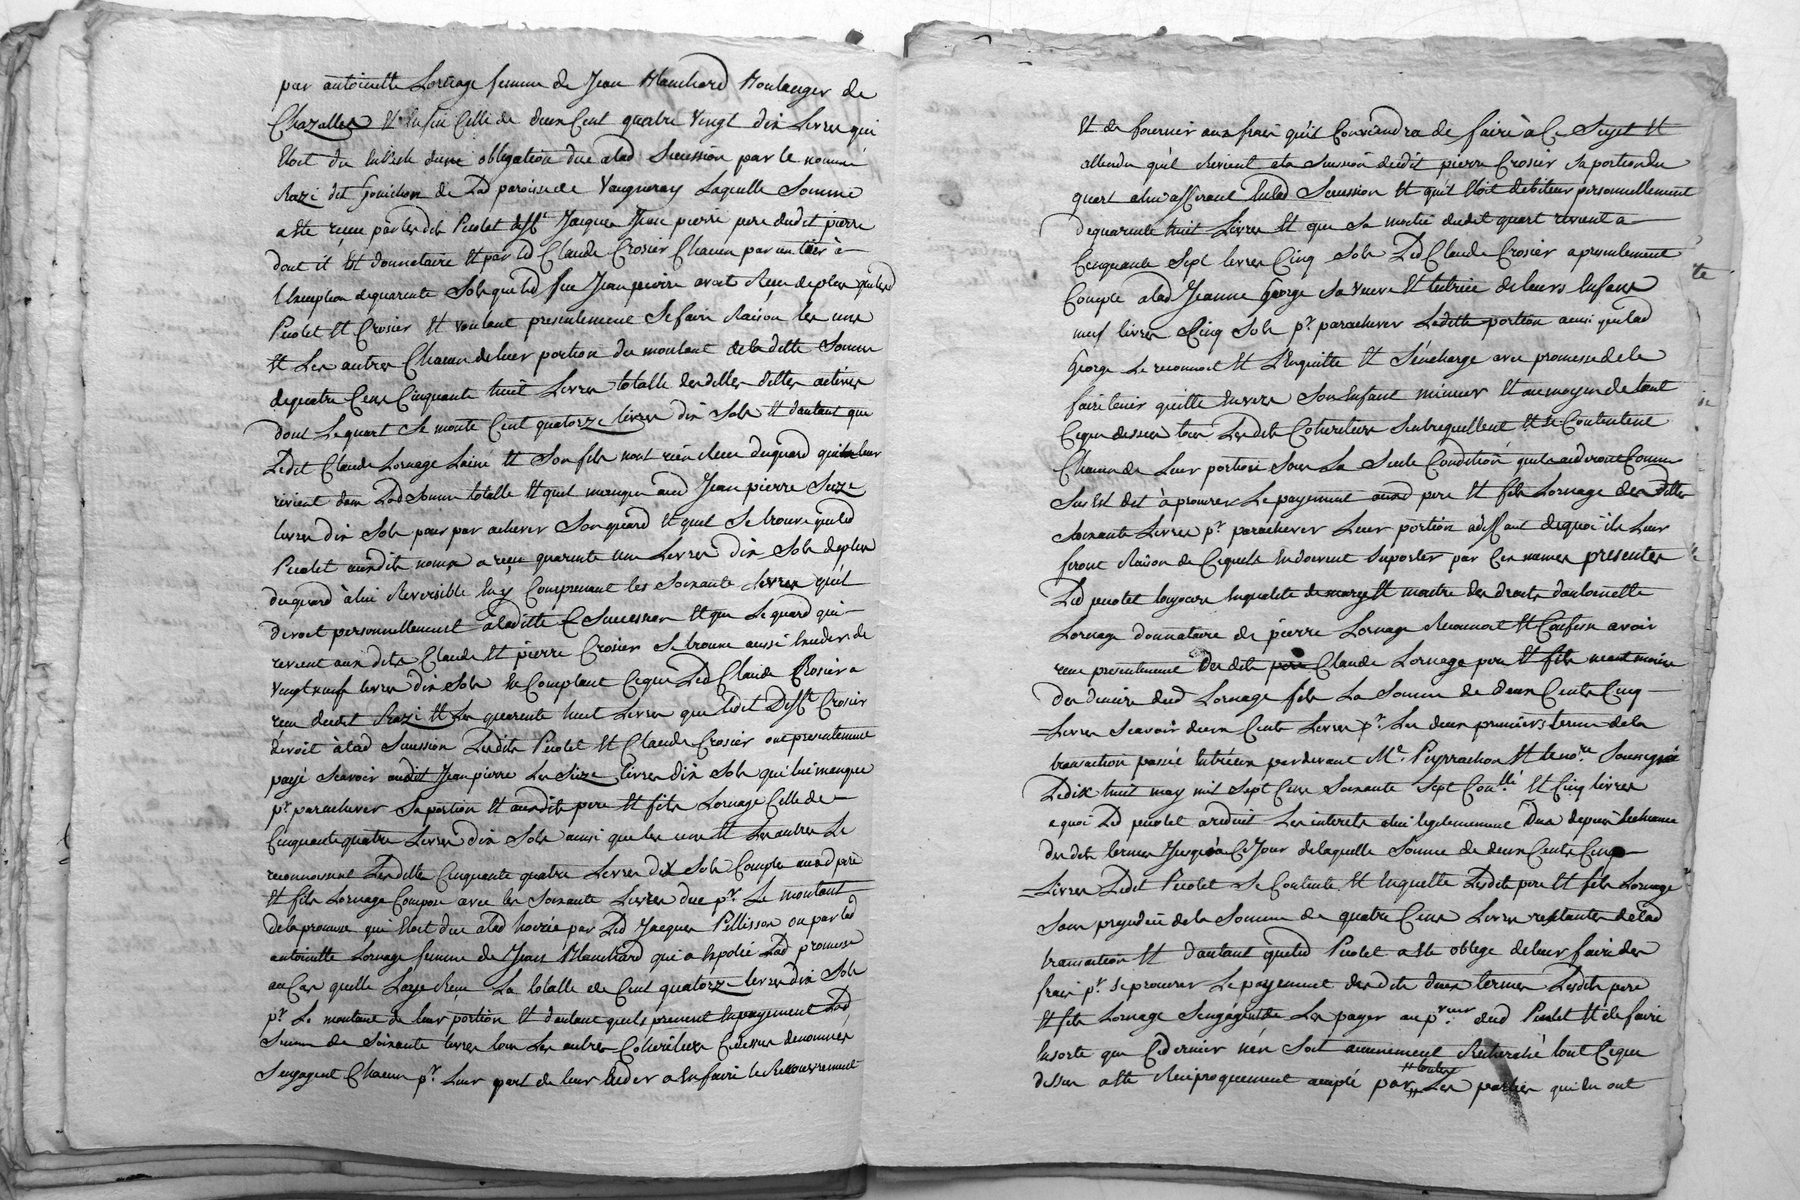 par antoinette Lornage femme de Jean Blanchard Boulanger de
Chazelles Et Enfin Celle de deux Cent quatre Vingt dix Livres qui
Etoit du Enbich dune obligation due alad Sucession par le nommé
Razi dit de Lad paroisse de Vaugneray Laquelle Somme
a Eté reçue par lesdits Picolet Jacques Jean pierre pere dudit pierre
dont il Est donnataire Et par led Claude Crosier Chacun par un tier à
l'Exception dequarente Sols queled feu Jean pierre avoit Reçu deplus queled
Picolet Et Crosier Et voulant presentement Se faire Raison les uns
Et Les autres Chacun deleur portion du montant deladitte Somme
dequatre Cens Cinquante huit Livres totalle desdittes dettes actives
dont Lequart Se monte Cent quatorze livres dix Sols Et dautant que
Ledit Claude Lornage Lainé Et Son fils nont rien Reçu duquard quileur
revient dans Lad Somme totalle Et quil manque aud Jean pierre Seize
livres dix Sols pour par achever Son quard Et quil Se trouve queled
Picolet auxdits noms a reçu quarente une Livres dix Sols deplus
duquard à lui Reversible En y Comprenant les Soixante livres qu'il
devoit personnellement aladitte Succession Et que Le quard qui
revient aux dits Claude Et pierre Crosier Se trouve aussi Exceder de
Vingt neuf livres dix Sols En Comptant Ceque Led Claude Crosier a
reçu dudit Razi Et Les quarente huit Livres que Ledit Crosier
devoit à lad Sucession Lesdits Picolet Et Claude Crosier ont presentement
payé Scavoir audit Jean pierre Les Seize livres dix Sols qui lui manque
pr parachever Sa portion Et auxdits pere Et fils Lornage Celle de
Cinquante quatre Livres dix Sols ainsi que les uns Et Les autres Le
reconnoissent Lesdittes Cinquante quatre Livres dix Sols Compte auxd pere
Et fils Lornage Compon avec les Soixante Livres due pr Le montant
dela promesse qui Etoit due alad hoirie par Led Jacques Pellisson ou par lad
antoinette Lornage femme de Jean Blanchard qui a Expolié Lad promesse
au Cas quelle Laye Reçu La totalle de Cent quatorze livres dix Sols
pr Le montant de leur portion Et dautant quils prenent En payement Lad
Somme de Soixante livres tous Les autres Coheritiers Cydessus denommés
Sengagent Chacun pr Leur part de leur Ender a En faire le Recouvrement
Et de fournir aux frais qu'il Conviendra de faire à Ce Sujet Et
attendu qu'il Revient ala Sucession dudit pierre Crosier Sa portion du
quart a lui afferant Enlad Sucession Et qu'il Etoit debiteur personnellement
dequarente huit Livres Et que Sa moitié dudit quart revient a
Cinquante Sept livres Cinq Sols Led Claude Crosier a presentement
Compté alad Jeanne George Sa veuve Et tutrice de leurs Enfans
neuf livres Cinq Sols pr parachever Ladite portion ainsi quelad
George Le reconnoit Et L'Enquitte Et decharge avec promesse de le
faire tenir quitte Envers Son Enfant mineur Et au moyen de tout
Ceque dessus tous Lesdits Coheritiers Sentrequittent Et Se Contentent
Chacun de Leur portion Sous La Seule Condition quils aideront Comme
Sus Est dit à procurer Le payement auxd pere Et fils Lornage des dittes
Soixante Livres pr parachever Leur portion adeffaut dequoi ils Leur
feront Raison de Cequils Endoivent Suporter par Ces memes presentes
Led picolet toujours Enqualité de mary Et maitre des droits dantoinette
Lornage donnataire de pierre Lornage Reconnoit Et Confesse avoir
reçu presentement desdits Claude Lornage pere Et fils neantmoins
des deniers dud Lornage fils La Somme de deux Cents Cinq
Livres Scavoir deux Cents Livres pr Les deux premiers termes de la
transaction passée Entrèeux pardevant Me Peyrachon Et le nore Soussigné
Ledix huit may mil Sept Cens Soixante Sept Conllé Et Cinq livres
a quoi Led picolet a reduit Les interets a lui legitimement Dus depuis Lecheance
desdits termes Jusqu'à Ce Jour delaquelle Somme de deux Cents Cinq
Livres Ledit Picolet Se Contente Et Enquitte Lesdits pere Et fils Lornage
Sans prejudice dela Somme de quatre Cens Livres restantes delad
transaction Et dautant queled Picolet a Eté obligé deleur faire des
frais pr se procurer Le payement desdits deux termes Lesdits pere
Et fils Lornage Sengagent de Les payer au preur dud Picolet Et de faire
Ensorte que Cedernier nen Soit aucunement Recherché tout Ceque
dessus a Eté Reciproquement accepté par toutes Les parties qui En ont